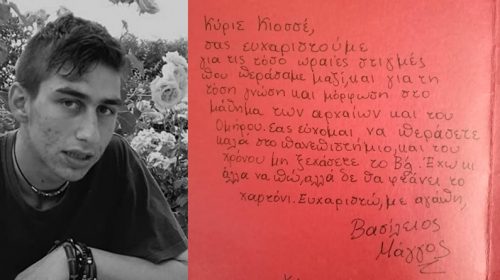 Κύριε Κιοσσέ,
σας ευχαριστούμε
για τις τόσο ωραίες στιγμές
που περάσαμε μαζί, και για τη
τόση γνώση και μόρφωση στο
μάθημα των αρχαίων και του
Ομήρου. Σας εύχομαι να περάσετε
καλά στο πανεπιστήμιο, και του
χρόνου μη ξεχάσετε το Β4. Έχω κι
άλλα να πω, αλλά δε θα φτάνει το
χαρτόνι. Ευχαριστώ, με αγάπη,
Βασίλειος
Μάγγος